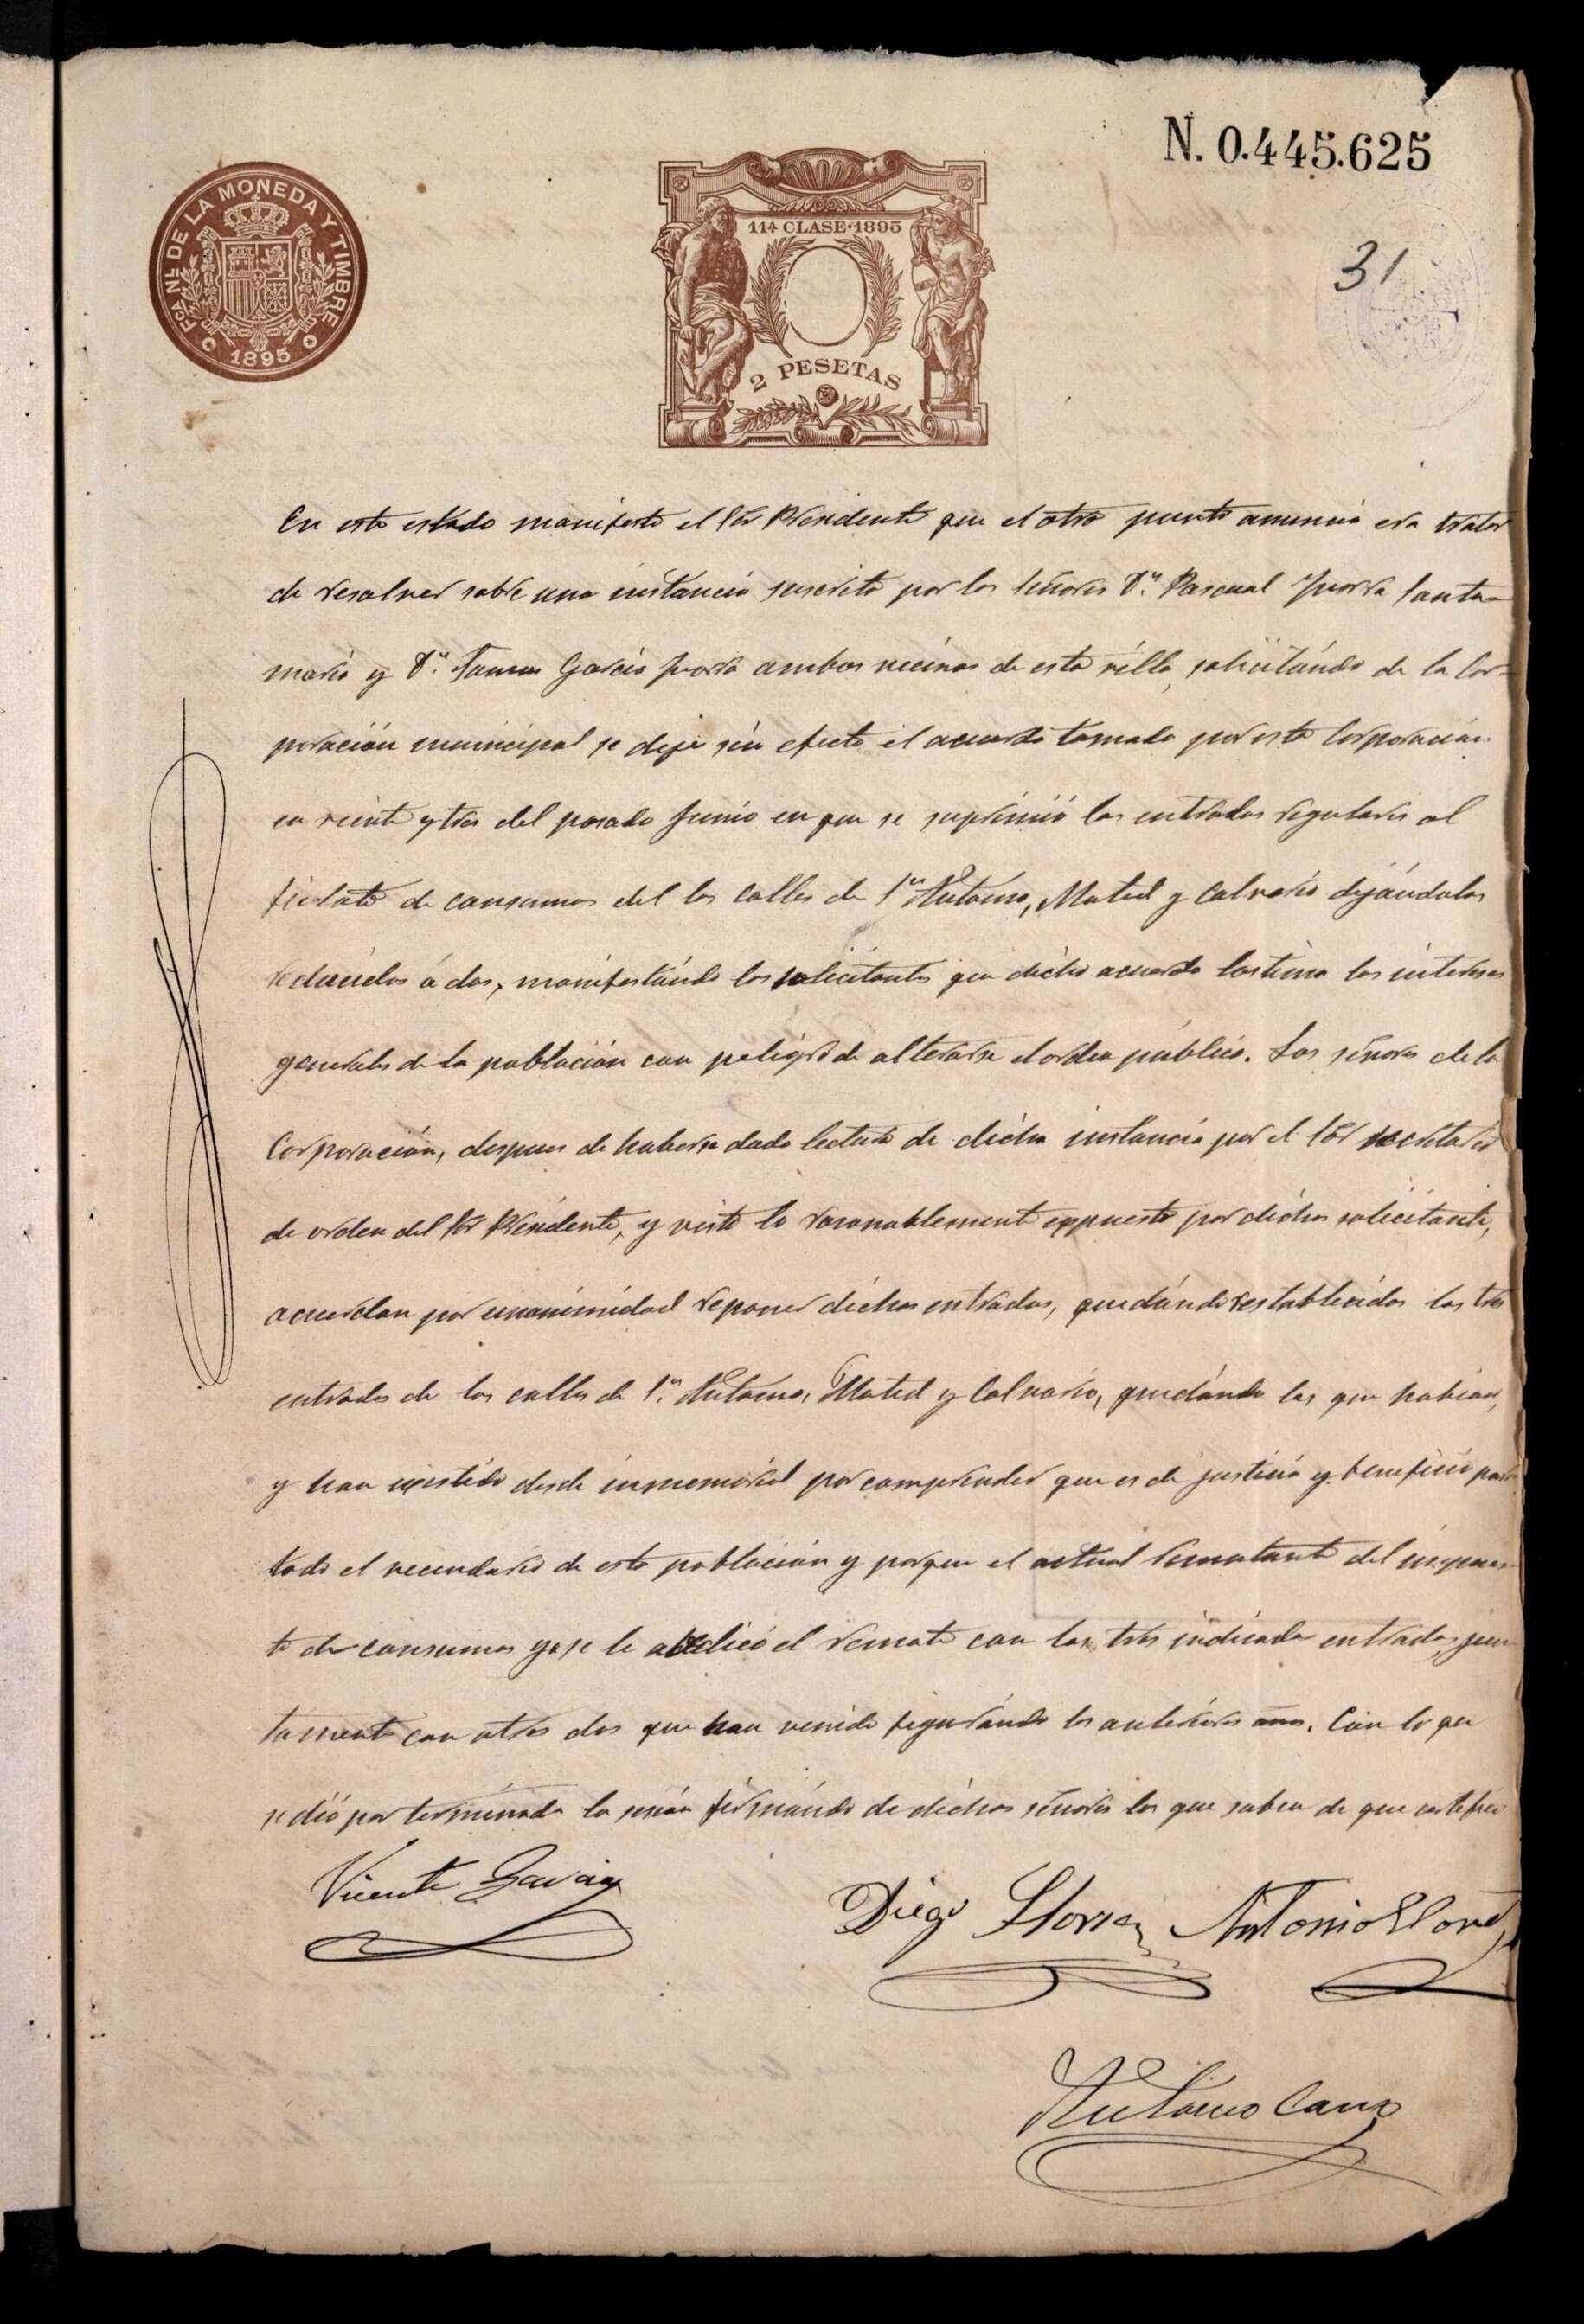 N. 0.445.625
FCA. NL. DE LA MONEDA Y TIMBRE
1895
11ª CLASE·1895
2 PESETAS
31
En este estado manifesto el Sór Presidente que el otro punto anuncio era tratar
de resolver sobre una instancia suscrita por los señores Dn. Pascual Yvorra Santa-
maria y Dn. Tomas Garcia Yvorra ambos vecinos de esta villa, solicitándo de la Cor-
poración municipal se deje sin efecto el acuerdo tomado por esta Corporacion
en veinte y tres del pasado Junio en que se suprimió las entradas regulares al
fielato de consumos del las calles de Sn Antonio, Mated y Calvario dejándolas
reducidas á dos, manifestándo los solicitantes que dicho acuerdo lastima los intereses
generales de la población con peligro de alterarse el orden público. Los señores de la
Corporación, despues de haberse dado lectura de dicha instancia por el Sór secretario
de orden del Sór Presidente, y visto lo rasonablement expuesto por dichos solicitante,
acuerdan por unanimidad reponer dichas entradas, quedándo restablecidas las tres
entradas de las calles de Sn. Antonio, Mated y Calvario, quedándo las que habian,
y han existido desde inmemorial por comprender que es de justicia y beneficio para
todo el vecindario de esta población y porque el actual rematante del impues-
to de consumos ya se le adedicó el remate con las tres indicada entradas, jun-
tamente con otras dos que han venido figurándo los anteriores años. Con lo que
se dió por terminada la sesión firmándo de dichos señores los que saben de que certifico
Vicente Garcia
Diego Llorca
Antonio Lloret
Antonio Cano